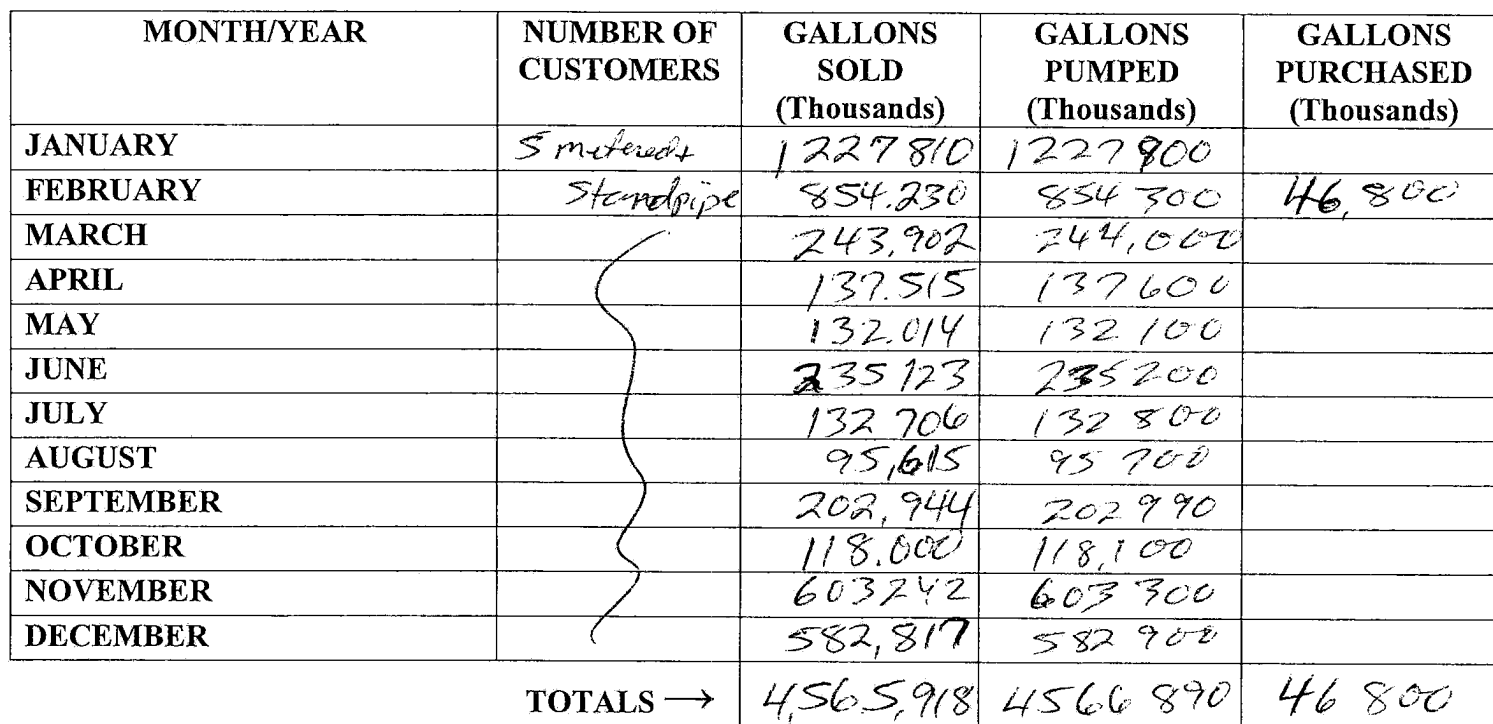 MONTH/YEAR NUMBER OF CUSTOMERS GALLONS SOLD (Thousands) GALLONS PUMPED (Thousands) GALLONS PURCHASED (Thousands)
JANUARY 5 metered + 1227810 1227900
FEBRUARY Standpipe 854.230 854 300 46,800
MARCH 243,902 244,000
APRIL 137.515 137600
MAY 132.014 132 100
JUNE 235123 235200
JULY 132 706 132 800
AUGUST 95,615 95 700
SEPTEMBER 202,944 202990
OCTOBER 118.000 118,100
NOVEMBER 603242 603 300
DECEMBER 582,817 582 900
TOTALS → 4,565,918 4566 890 46 800